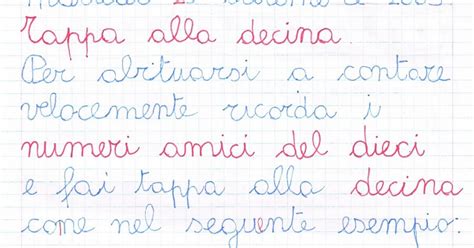 Tappa alla decina.
Per abituarsi a contare
velocemente ricorda i
numeri amici del dieci
e fai tappa alla decina
come nel seguente esempio: